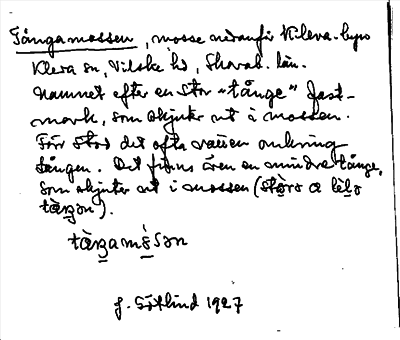 Tångamossen, mosse nedanför Kleva-byn
Kleva sn, Vilske hd, Skarab. län.
Namnet efter en stor "tånge" fast-
mark, som skjuter ut i mossen.
Förr stod det ofta vatten omkring
tången. Det finns även en mindre tånge,
som skjuter ut i mossen (
tàŋən).
tàŋamòsən
J. Götlind 1927